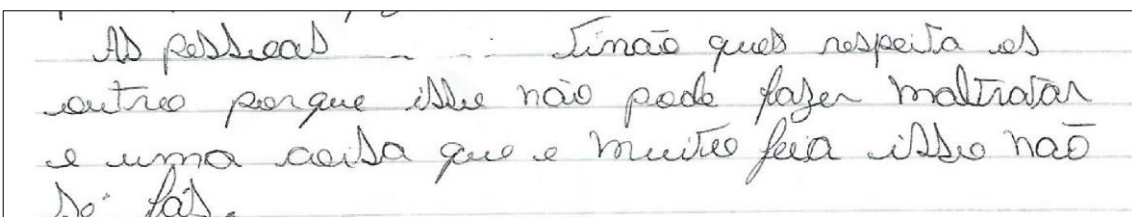 As pessoas Tinão ques respeita os
outro porque isso não pode fazer maltratar
e uma coisa que e muito feia isso não
se fás.